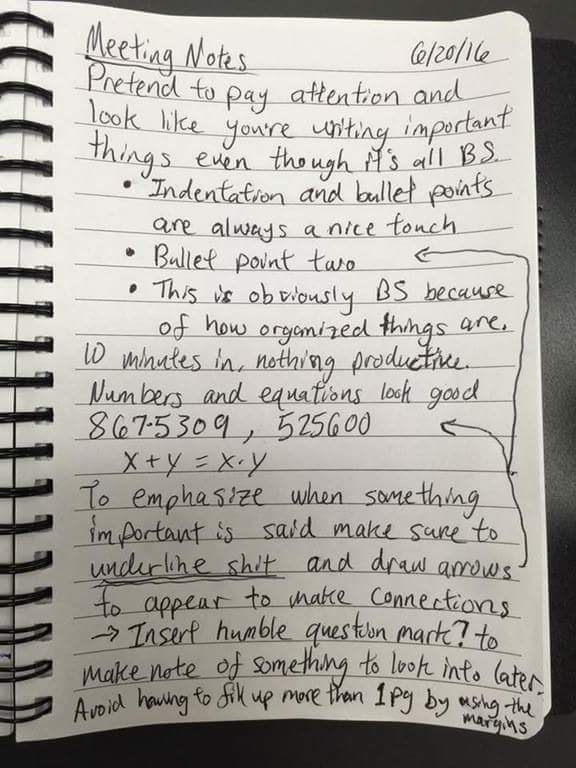 Meeting Notes 6/20/16
Pretend to pay attention and
look like you're writing important
things even though it's all BS.
• Indentation and bullet points
are always a nice touch
• Bullet point two
• This is obviously BS because
of how organized things are.
10 minutes in, nothing productive.
Numbers and equations look good
867-5309, 525600
x + y = x · y
To emphasize when something
important is said make sure to
underline shit and draw arrows
to appear to make connections
→ Insert humble question mark? to
make note of something to look into later.
Avoid having to fill up more than 1pg by using the
margins